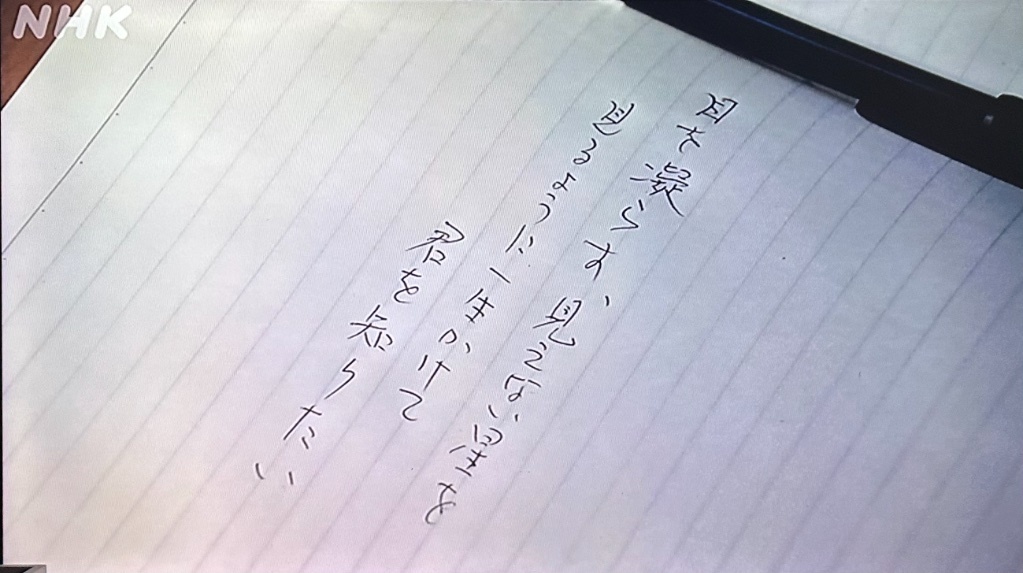 NHK
目を凝らす、見えない星を
見るように一生かけて
君を知りたい